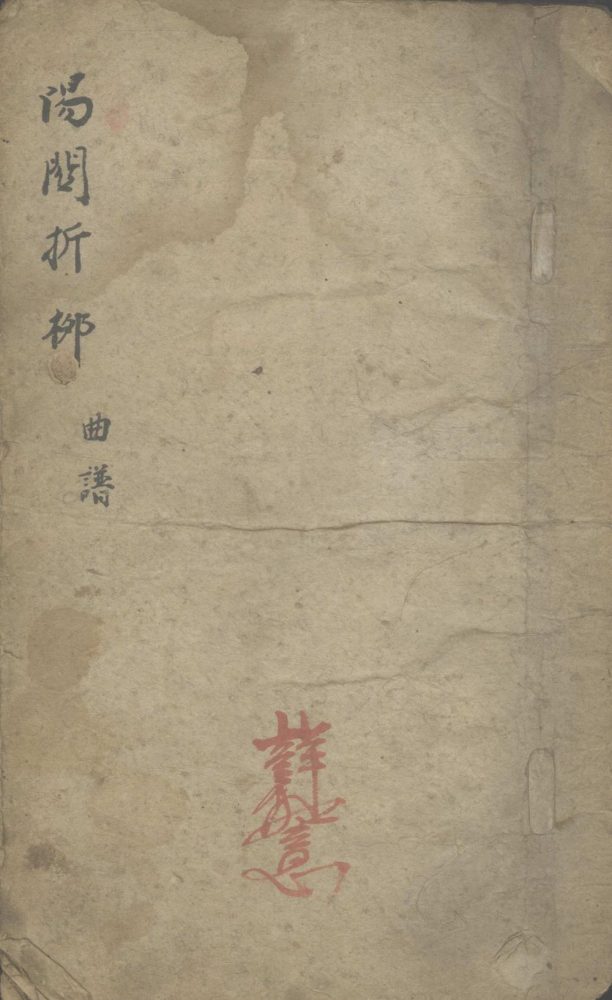 陽關折柳
曲譜